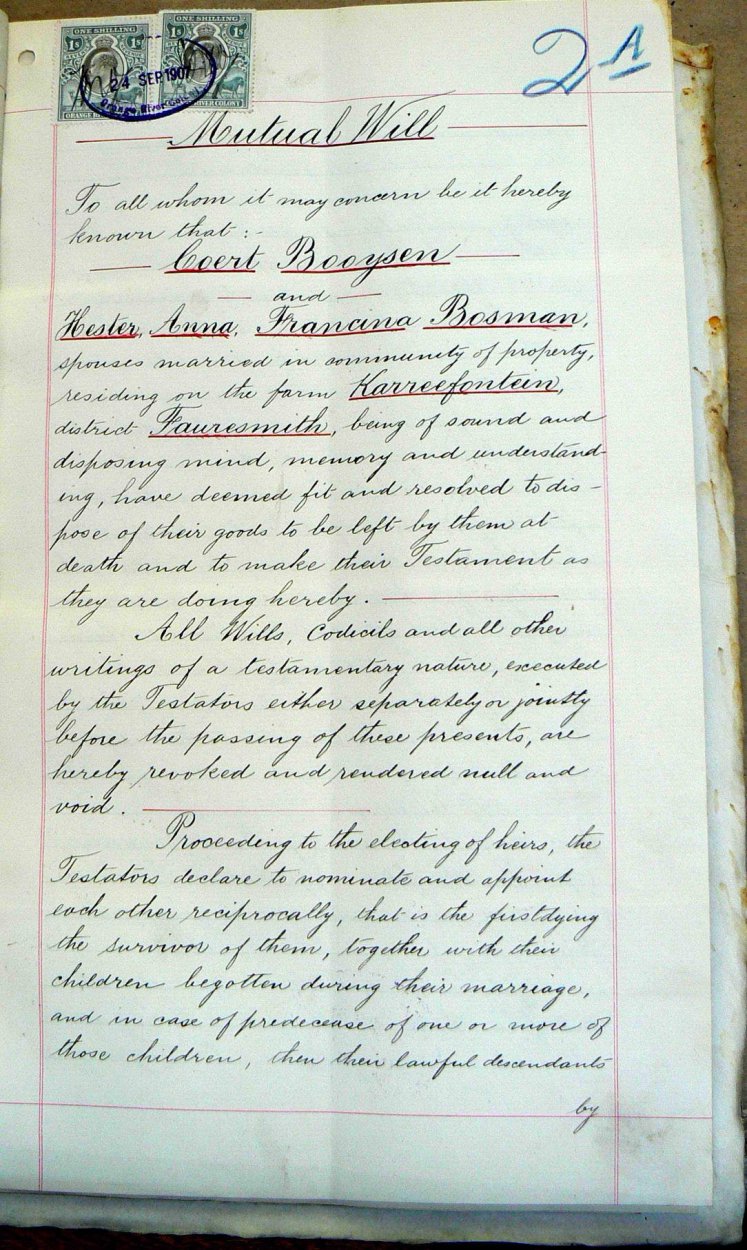 ONE SHILLING
1s 1s
ONE SHILLING
1s 1s
24 SEP 1907
Orange River Colony
2 A
Mutual Will
To all whom it may concern be it hereby
known that :-
Coert Booysen
and
Hester, Anna, Francina Bosman,
spouses married in community of property,
residing on the farm Karreefontein,
district Fauresmith, being of sound and
disposing mind, memory and understand-
ing, have deemed fit and resolved to dis-
pose of their goods to be left by them at
death and to make their Testament as
they are doing hereby.
All Wills, Codicils and all other
writings of a testamentary nature, executed
by the Testators either separately or jointly
before the passing of these presents, are
hereby revoked and rendered null and
void.
Proceeding to the electing of heirs, the
Testators declare to nominate and appoint
each other reciprocally, that is the firstdying
the survivor of them, together with their
children begotten during their marriage,
and in case of predecease of one or more of
those children, then their lawful descendants
by